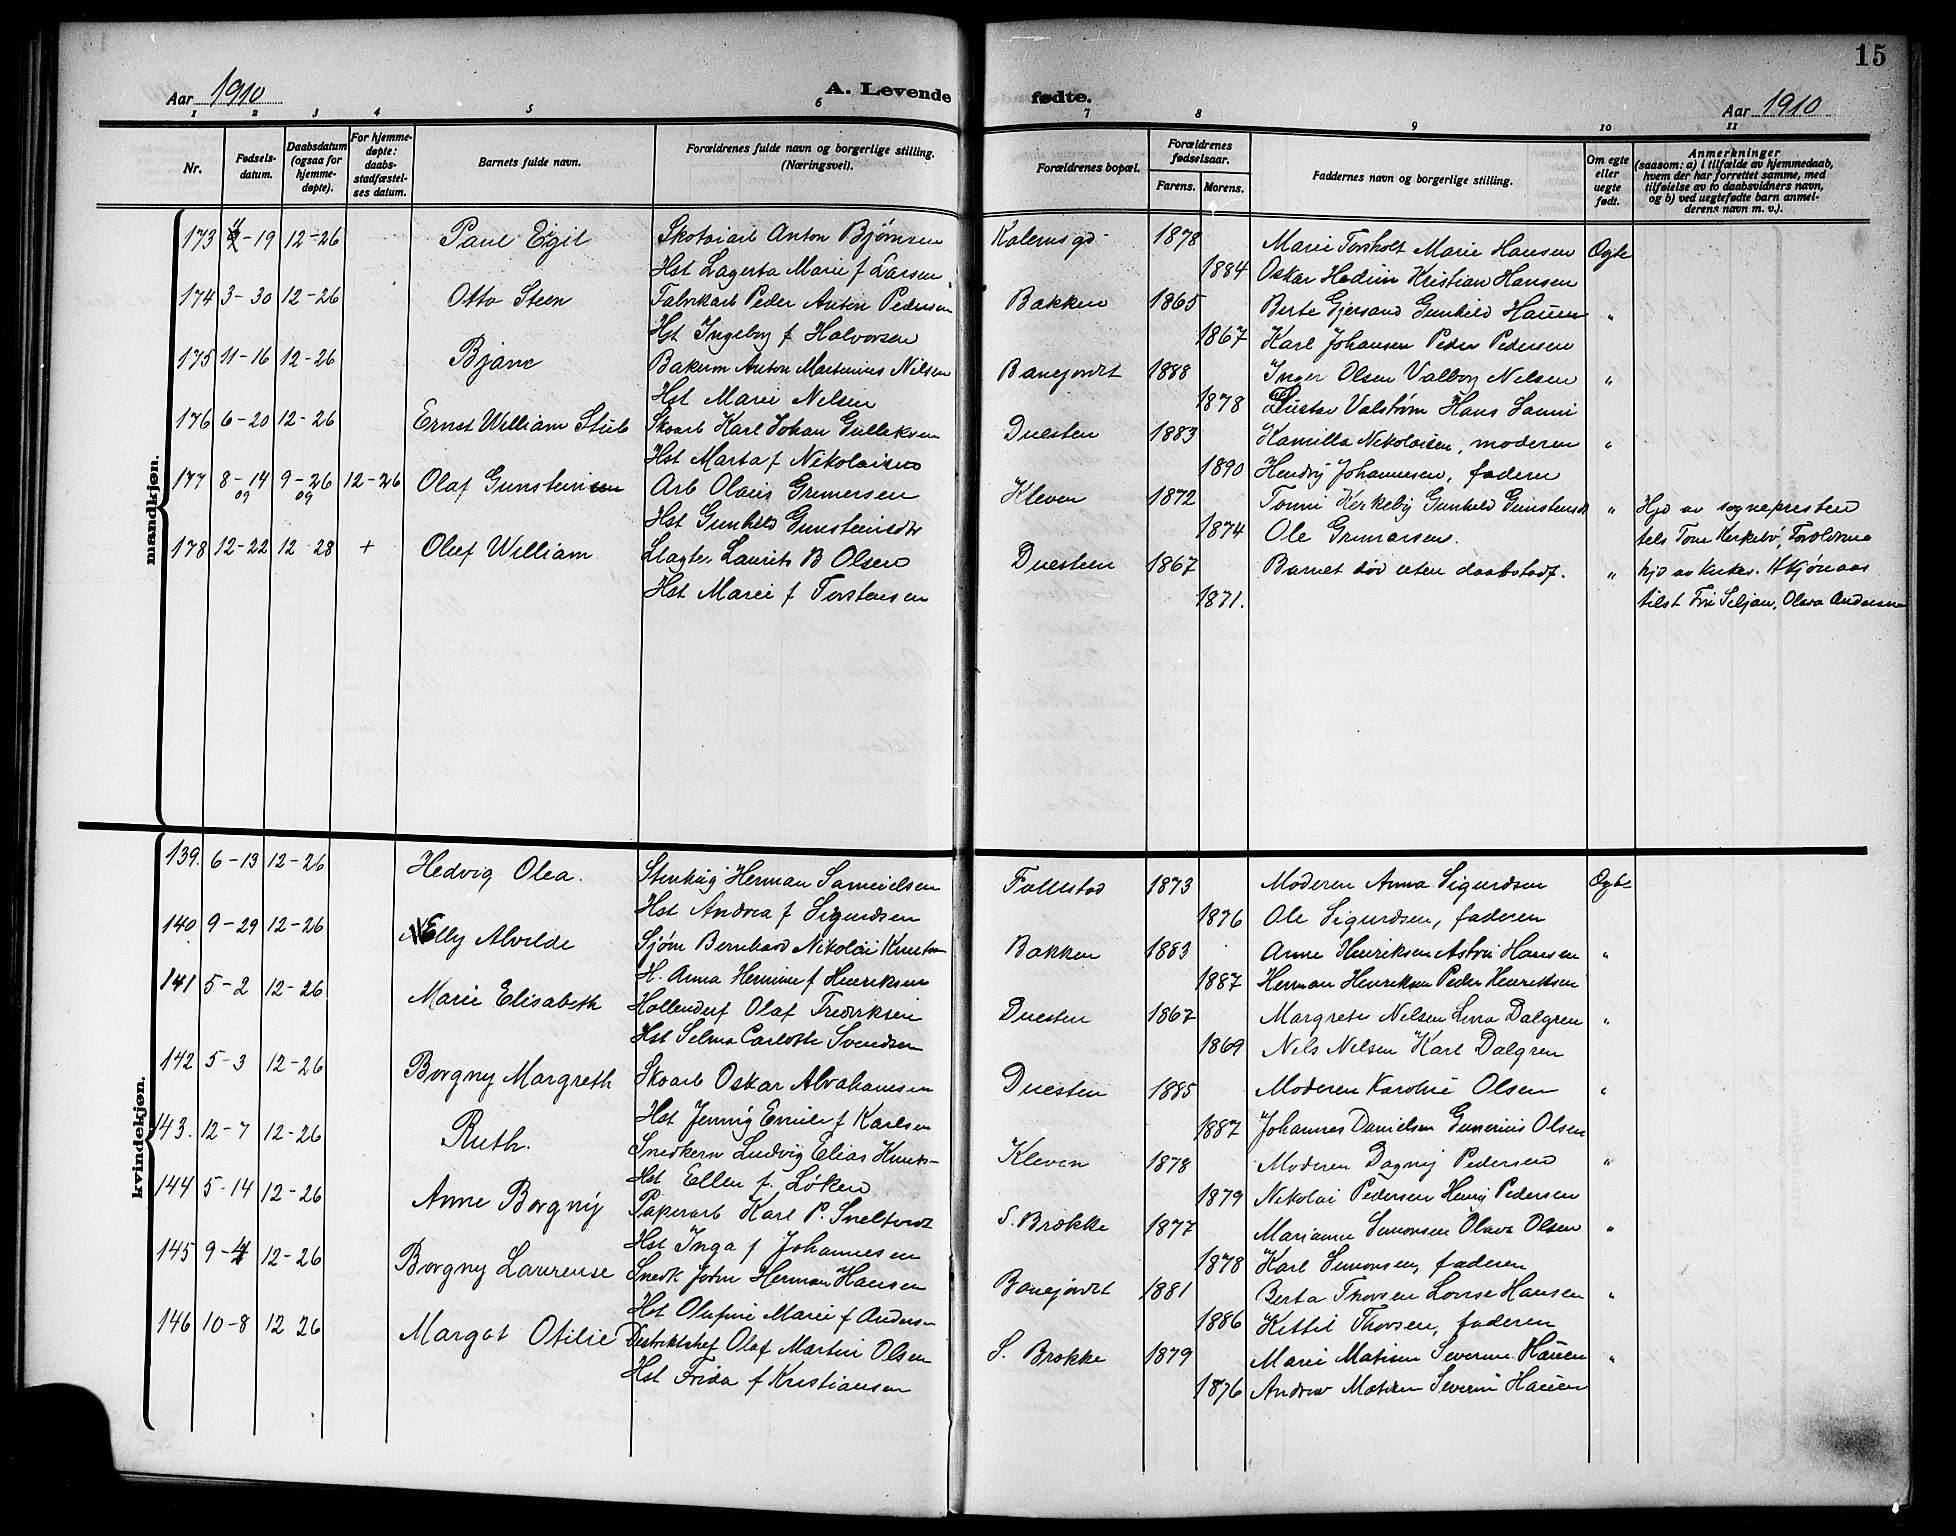 15
Aar 1910
A. Levende fødte.
Aar 1910
1 2 3 4 5 6 7 8 9 10 11
Nr.
Fødsels-
datum.
Daabsdatum
(ogsaa for
hjemme-
døpte).
For hjemme-
døpte:
daabs-
stadfæstel-
ses datum.
Barnets fulde navn.
Forældrenes fulde navn og borgerlige stilling.
(Næringsvei).
Forældrenes bopæl.
Forældrenes
fødselsaar.
Farens. Morens.
Faddernes navn og borgerlige stilling.
Om egte
eller
uegte
født.
Anmerkninger
(saasom: a) i tilfælde av hjemmedaab,
hvem der har forrettet samme, med
tilføielse av to daabsvidners navn,
og b) ved uegtefødte barn anmel-
derens navn m. v.).
mandkjøn.
173 -19 12-26 Paul Egil Skotøiarb Anton Bjørnsen 1878 Marie Forsholt Marie Hansen Ogte
Hst Lagerta Marie f Larsen 1884 Oskar Hedrim Kristian Hansen
174 3-30 12-26 Otto Steen Fabrikarb Peder Anton Pedersen Bakken 1865 Berte Gjersand Gunhild Hauen "
Hst Ingeborg f Halvorsen 1867 Karl Johansen Peder Pedersen
175 11-16 12-26 Bjarne Bakerm Anton Martinius Nilsen Banejordet 1888 Inger Olsen Valborg Nelsen "
Hst Marie Nelsen 1878 Gustav Valstrøm Hans
176 6-20 12-26 Ernst William Stub Skoarb Karl Johan Gulleksen Duesten 1883 Kamilla Nikolaisen, moderen "
Hst Marta f Nikolaisen 1890 Hendrij Johannesen, fadern
177 8-14 9-26 12-26 Olaf Gunsteinsen Arb Olaus Grunersen Kleven 1872 Tomi Kerkebij Gunhild Gunstensdt " Hjd av sognepresten
og og
Hst Gunhild Gunsteinsdtr 1874 Ole Grunarsen. tils Tone Kerkebø, Forældrene
178 12-22 12 28 + Oluf William Slagter Laurits B Olsen Duesten 1867 Barnet død uten daabstadf. " hjd av kirkes. H Kjønaas
Hst Marie f Torstensen 1871. tilst Fru Seljan, Olava Andersen
kvindekjøn.
139. 6-13 12-26 Hedvig Olea. Stenhug Herman Samuelsen Follestad 1873 Moderen Anna Sigurdsen Ogte
Hst Andrea f Sigurdsen 1876 Ole Sigurdsen, faderen
140 9-29 12-26 Nelly Alvilde Sjøm Bernhard Nikolai Knutsen Bakken 1883 Anne Henriksen Astri Hansen "
H. Anna Hermine f Henriksen 1887 Herman Henriksen Peder Henriksen
141 5-2 12-26 Marie Elisabeth Hollenderf Olaf Fredriksen Duesten 1867 Margrete Nelsen Lena Dalgren "
Hst Selma Carlotte Svendsen 1869 Nels Nelsen Karl Dalgren
142 5-3 12-26 Borgny Margreth Skoarb Oskar Abrahamsen Duesten 1885 Moderen Karoline Olsen "
Hst Jennij Emilie f Karlsen 1887 Johannes Danielsen Gunerius Olsen
143. 12-7 12-26 Ruth. Snedkern Ludvig Elias Knuts- Kleven 1878 Moderen Dagnij Pedersen "
Hst Ellen f. Løken 1879 Nikolai Pedersen Henrij Pedersen
144 5-14 12-26 Anne Borgnij Paperarb Karl P. Sneltvedt S. Brokke 1877 Marianne Simonsen Olava Olsen "
Hst Inga f Johannesen 1878 Karl Simonsen, faderen
145 9-4 12-26 Borgny Laurense Snedk John Herman Hansen Banejordet 1881 Berta Thorsen Lovise Hansen "
Hst Olufine Marie f Anders- 1886 Kittil Thorsen, faderen
146 10-8 12 26 Margot Otilie Destriktshef Olaf Martin Olsen S. Brokke 1879 Marie Matisen Severine Hauen "
Hst Frida f Kristiansen 1876 Andrew Matisen Severin Hauen